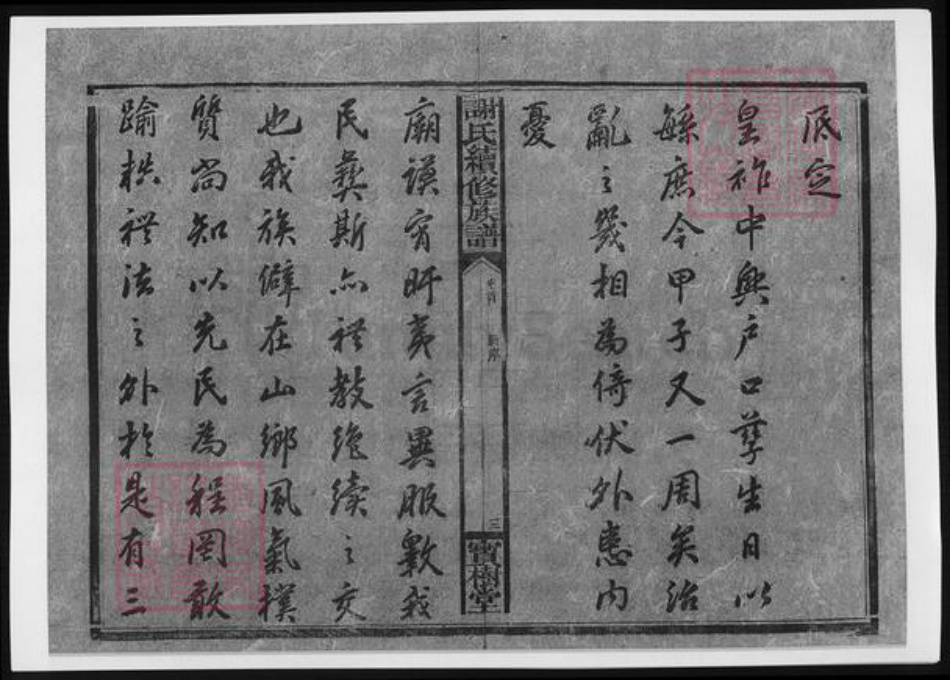 底定
皇祚中興户口孳生日以
繇庶今甲子又一周矣治
亂之幾相為倚伏外患内
憂
謝氏續修族譜
卷首
新序
三
寳樹堂
廟謨宵旰夷言異服斁我
民彝斯亦禮教絶續之交
也我族僻在山鄉風氣樸
質尚知以先民為程罔敢
踰桄禮法之外於是有三